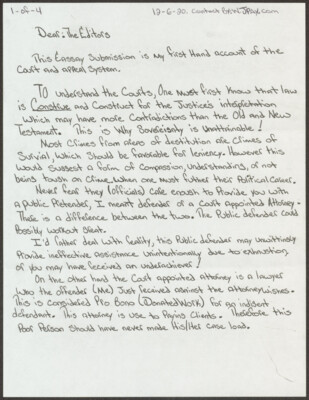 1-of-4
12-6-20
Dear: The Editors
This Eassay Submission is my first Hand account of the
Court and appeal System.
To understand the Courts, One must first Know that law
is Construe and Construct for the Justice's interpretation
which may have more Contradictions than the Old and New
Testament. This is Why Sovereignty is Unattainable!
Most Crimes from areas of destitution are Crimes of
Survival, Which Should be favorable for leniency. However this
Would Suggest a form of Compassion, Understanding, of not
being tough on Crime. When one must further their Political Career.
Never fear they (officials) Care enough to Provide you with
a Public Pretender, I meant defender of a Court appointed Attorney.
There is a difference between the two. The Public defender Could
Possibly workout great.
I'd rather deal with reality, this Public defender may unwittingly
Provide ineffective assistance unintentionally due to exhaustion,
of you may have received an underachiever.
On the other hand the Court appointed attorney is a lawyer
who the offender (Me) Just received against the attorney wishes.
This is considered Pro Bono (Donated Work) for an indigent
defendant. This attorney is use to Paying Clients. Therefore this
Poor Person Should have never made His/Her Case load.